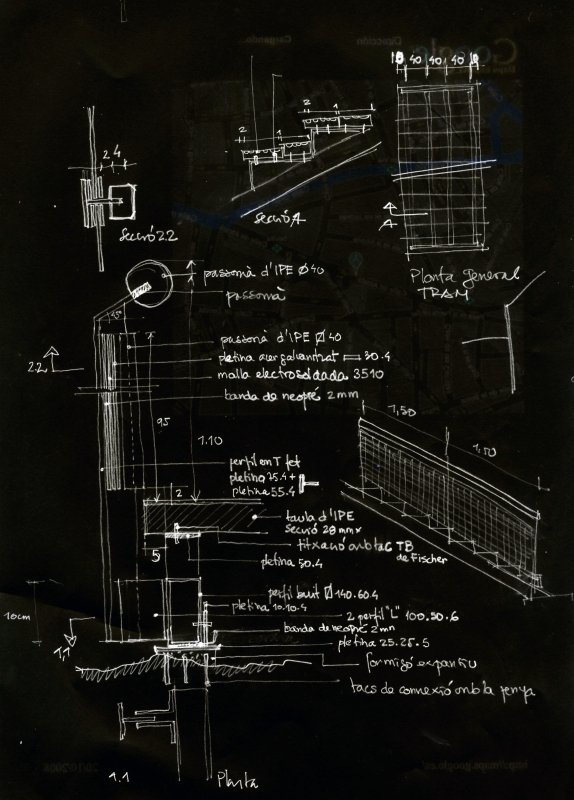 2.2
10 40 40 40 10
2 1
2 1
2 4
secció 2.2
secció A
A
A
Planta general
TRAM
passamà d'IPE Ø40
passamà
45°
passamà d'IPE Ø40
2.2
pletina acer galvanitzat 30.4
malla electrosoldada 3510
banda de neopré 2mm
95
1.10
1,50
1,50
perfil en T fet
pletina 25.4 +
pletina 55.4
2
taula d'IPE
secció 28 mm x
fixació amb tac TB
de Fischer
5
pletina 50.4
perfil buit 140.60.4
pletina 10.10.4
2 perfil "L" 100.50.6
banda de neopré 2mm
pletina 25.25.5
10cm
1,1
formigó expansiu
tacs de connexió amb la penya
1.1
Planta